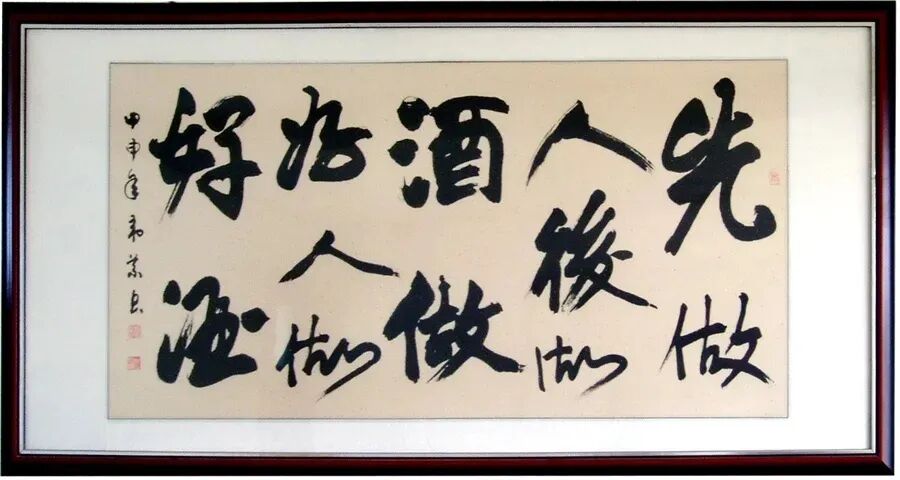 先做
人後做
酒做
好人做
好酒
甲申年